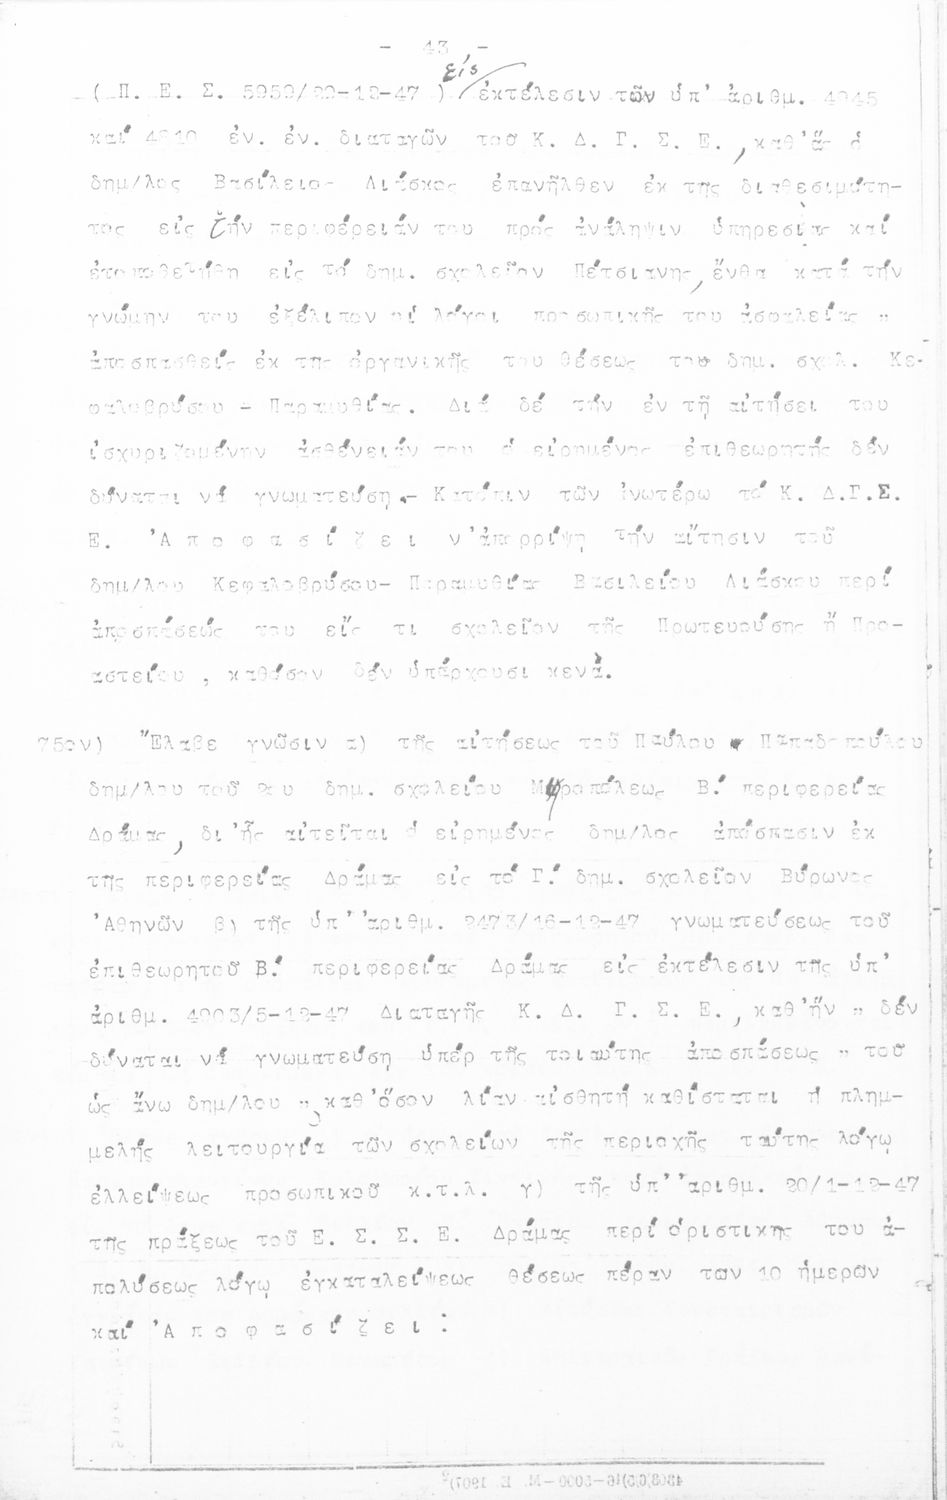 - 43 -
εἰς
( Π. Ε. Σ. 5959/22-12-47 ) ἐκτέλεσιν τῶν ὑπ' ἀριθμ. 4945
καί 4810 ἐν. ἐν. διαταγῶν τοῦ Κ. Δ. Γ. Σ. Ε., καθ'ἅς ὁ
δημ/λος Βασίλειος Λιάσκος ἐπανῆλθεν ἐκ τῆς διαθεσιμότη-
τος εἰς τήν περιφέρειάν του πρός ἀνάληψιν ὑπηρεσίας καί
ἐτοποθετήθη εἰς τό δημ. σχολεῖον Πέτσιανης, ἔνθα κατά τήν
γνώμην του ἐξέλιπον οἱ λόγοι προσωπικῆς του ἀσφαλείας "
ἀποσπασθείς ἐκ τῆς ὀργανικῆς του θέσεως του δημ. σχολ. Κε-
φαλοβρύσου - Παραμυθίας. Διά δέ τήν ἐν τῇ αἰτήσει του
ἰσχυριζομένην ἀσθένειάν του ὁ εἰρημένος ἐπιθεωρητής δέν
δύναται νά γνωματεύση.- Κατόπιν τῶν ἀνωτέρω τό Κ. Δ.Γ.Σ.
Ε. 'Α π ο φ α σ ί ζ ε ι ν'ἀπορρίψη τήν αἴτησιν τοῦ
δημ/λου Κεφαλοβρύσου- Παραμυθίας Βασιλείου Λιάσκου περί
ἀποσπάσεώς του εἴς τι σχολεῖον τῆς Πρωτευούσης ἤ Προ-
αστείου , καθόσον δέν ὑπάρχουσι κενά.
75ον) "Ελαβε γνῶσιν α) τῆς αἰτήσεως τοῦ Παύλου Παπαδοπούλου
δημ/λου τοῦ 2ου δημ. σχολείου Μυροπόλεως Β.' περιφερείας
Δράμας, δι'ἧς αἰτεῖται ὁ εἰρημένος δημ/λος ἀπόσπασιν ἐκ
τῆς περιφερείας Δράμας εἰς τό Γ.' δημ. σχολεῖον Βύρωνος
'Αθηνῶν β) τῆς ὑπ' 'αριθμ. 2473/16-12-47 γνωματεύσεως τοῦ
ἐπιθεωρητοῦ Β.' περιφερείας Δράμας εἰς ἐκτέλεσιν τῆς ὑπ'
ἀριθμ. 4903/5-12-47 Διαταγῆς Κ. Δ. Γ. Σ. Ε., καθ'ἥν " δέν
δύναται νά γνωματεύση ὑπέρ τῆς τοιαύτης ἀποσπάσεως " τοῦ
ὡς ἄνω δημ/λου ", καθ'ὅσον λίαν αἰσθητή καθίσταται ἡ πλημ-
μελής λειτουργία τῶν σχολείων τῆς περιοχῆς ταύτης λόγῳ
ἐλλείψεως προσωπικοῦ κ.τ.λ. γ) τῆς ὑπ' 'αριθμ. 20/1-12-47
τῆς πράξεως τοῦ Ε. Σ. Σ. Ε. Δράμας περί ὁριστικῆς του ἀ-
πολύσεως λόγῳ ἐγκαταλείψεως θέσεως πέραν των 10 ἡμερῶν
καί 'Α π ο φ α σ ί ζ ε ι :